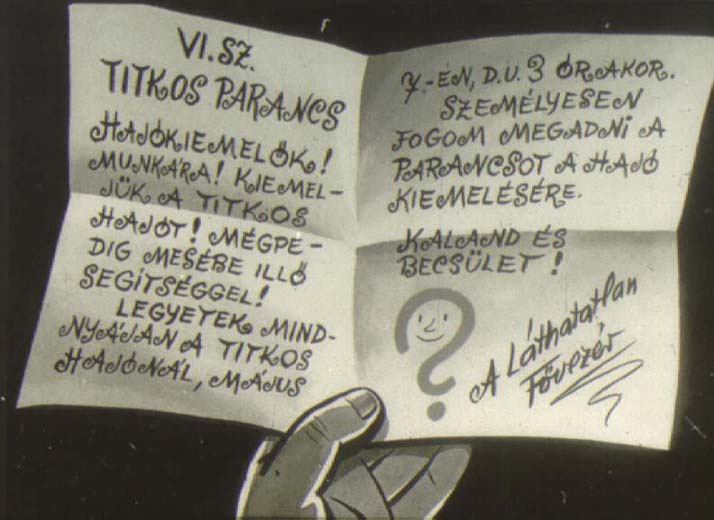 VI. SZ.
TITKOS PARANCS
HAJÓKIEMELŐK!
MUNKÁRA! KIEMEL-
JÜK A TITKOS
HAJÓT! MÉGPE-
DIG MESÉBE ILLŐ
SEGÍTSÉGGEL!
LEGYETEK MIND-
NYÁJAN A TITKOS
HAJÓNÁL, MÁJUS
7.-ÉN, D.U. 3 ÓRAKOR.
SZEMÉLYESEN
FOGOM MEGADNI A
PARANCSOT A HAJÓ
KIEMELÉSÉRE.
KALAND ÉS
BECSÜLET!
?
A Láthatatlan
Fővezér